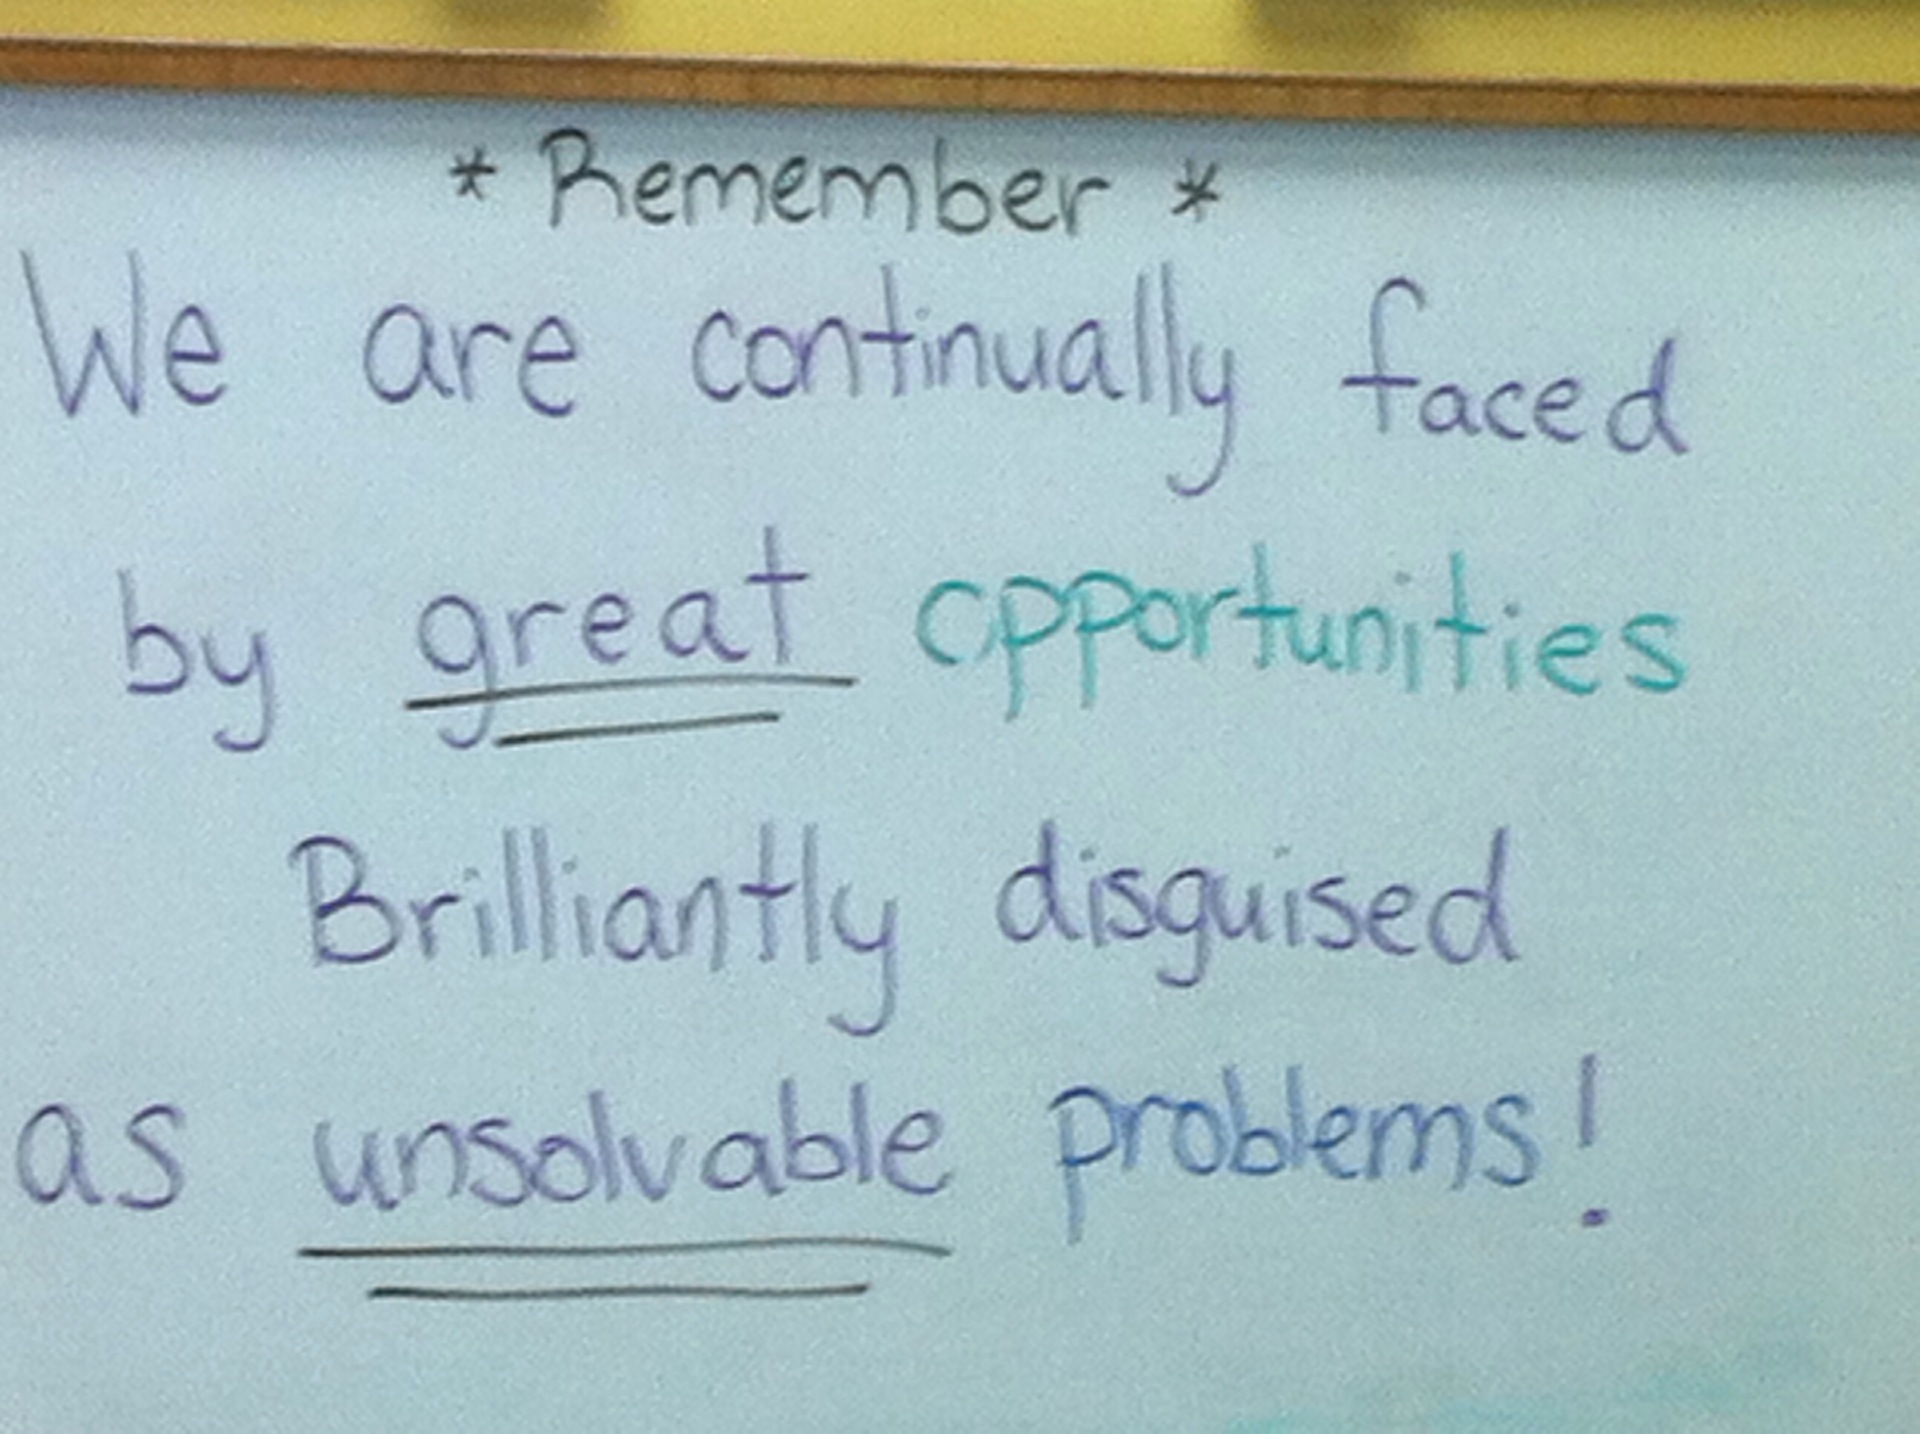 * Remember *
We are continually faced
by great opportunities
Brilliantly disguised
as unsolvable problems!